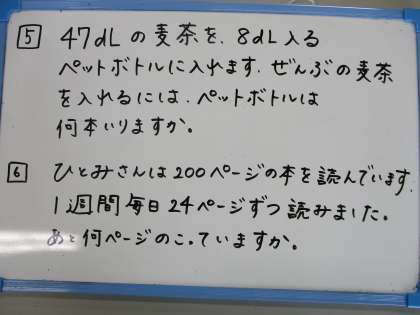 5 47dLの麦茶を、8dL入る
ペットボトルに入れます。ぜんぶの麦茶
を入れるには、ペットボトルは
何本いりますか。
6 ひとみさんは200ページの本を読んでいます。
1週間毎日24ページずつ読みました。
あと何ページのこっていますか。